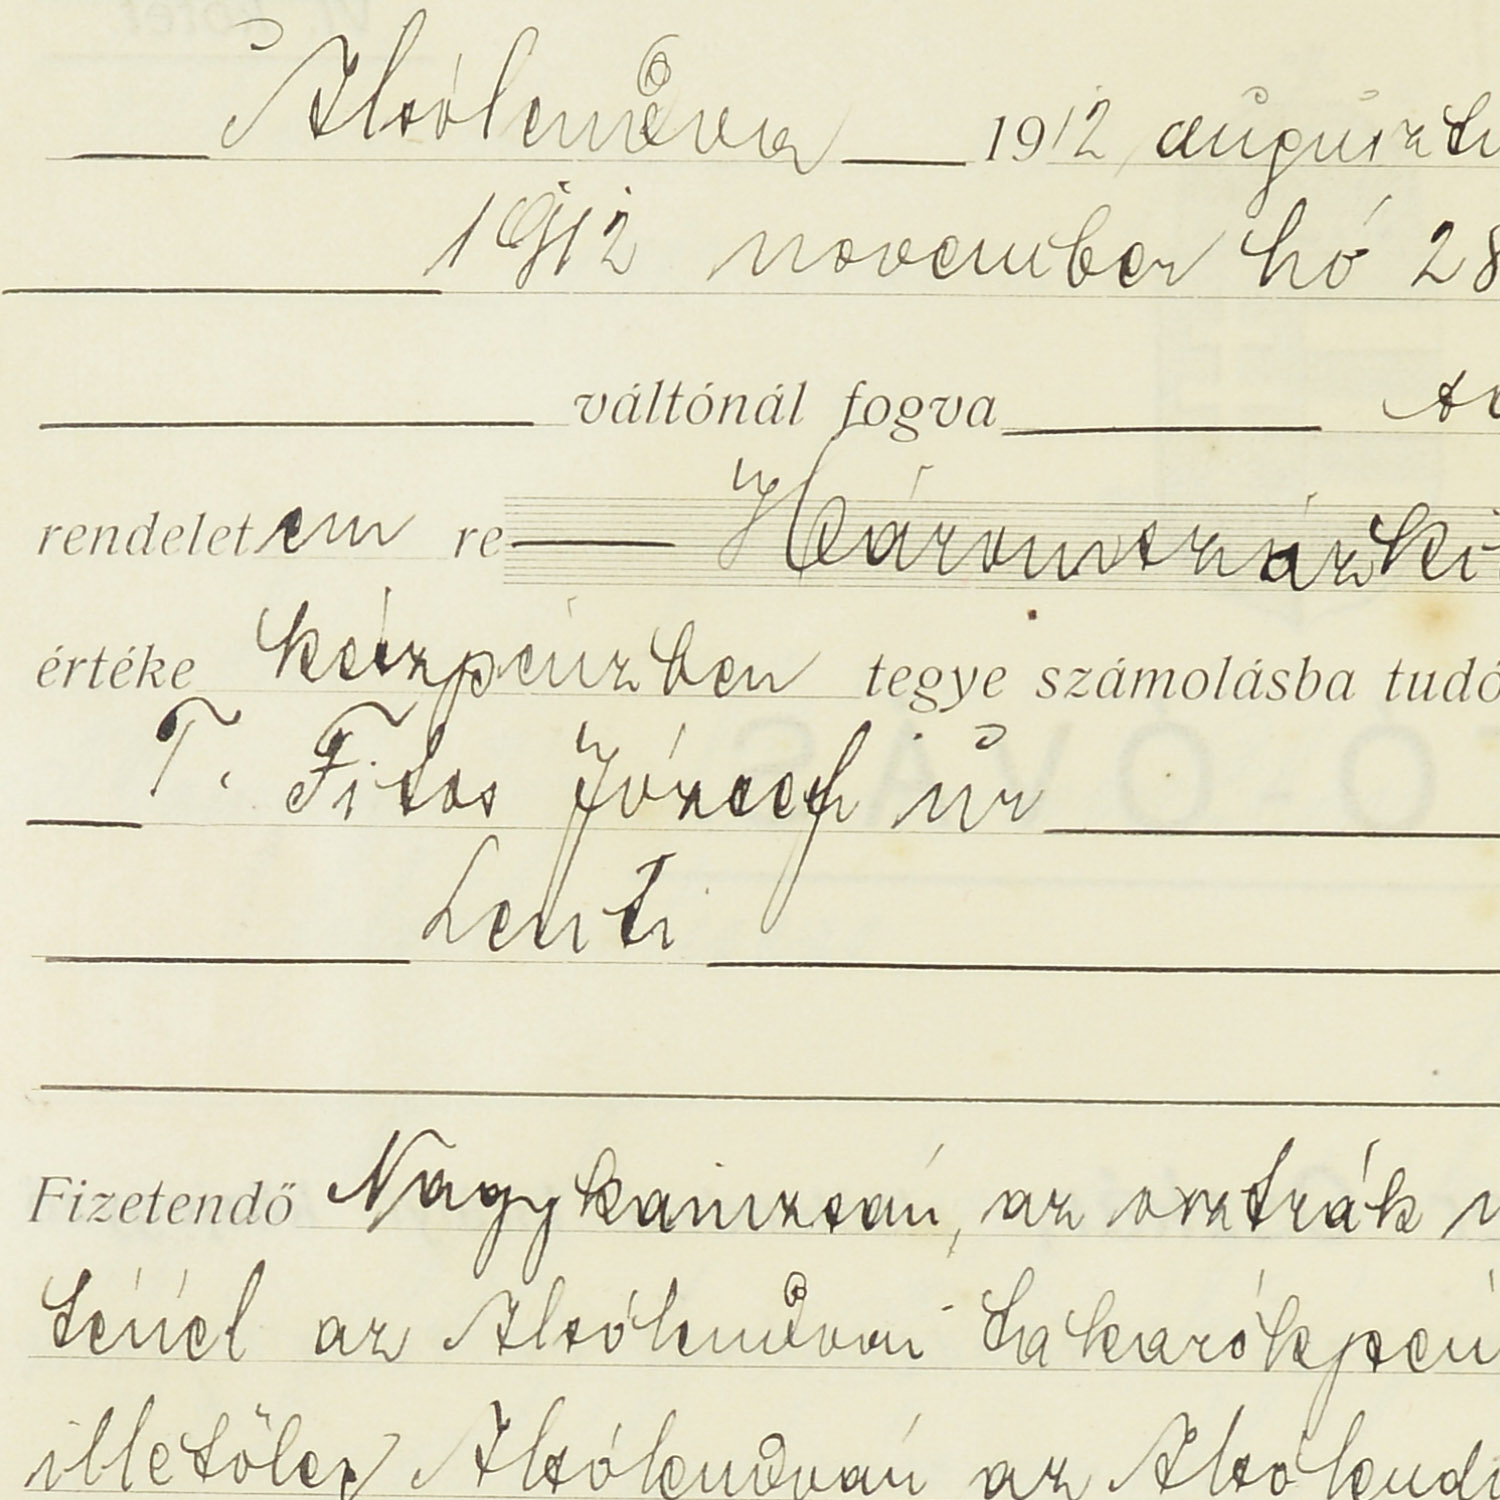 Alsólendva 1912 auguszt
1912 november hó 28
váltónál fogva
rendeletem re Háromszáz
értéke készpénzben tegye számolásba tudó
T. Fitos József úr
Lenti
Fizetendő Nagykanizsán, az osztrák
ténél az Alsólendvai takarékpén
illetőleg Alsólendván az Alsólend